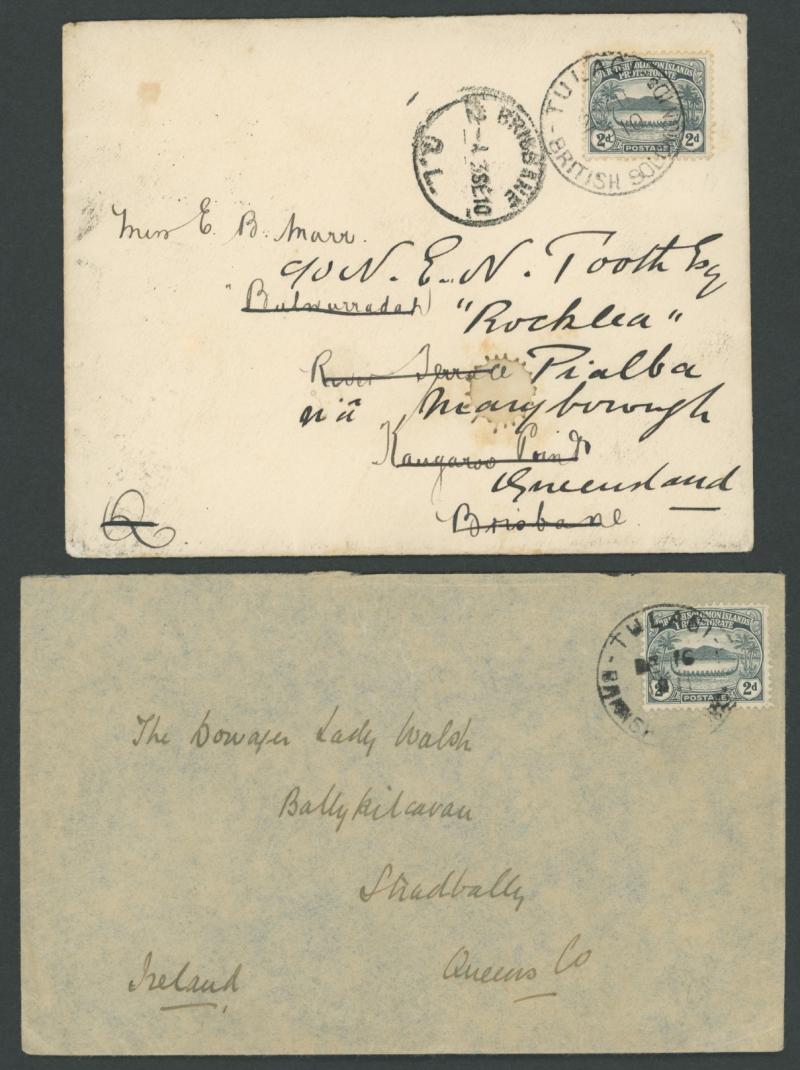 BRITISH SOLOMON ISLANDS
PROTECTORATE
2d POSTAGE 2d
TULAGI
BRITISH SOLOMON
BRISBANE
3 SE 10
Miss E. B. Marr.
c/o N. E. N. Tooth Esq
"Bulwurradah"
"Rocklea"
River Terrace Pialba
via Maryborough
Kangaroo Point
Queensland
Brisbane.
Q
BRITISH SOLOMON ISLANDS
PROTECTORATE
2d POSTAGE 2d
16
The Dowager Lady Walsh
Ballykilcavan
Stradbally
Queens Co
Ireland